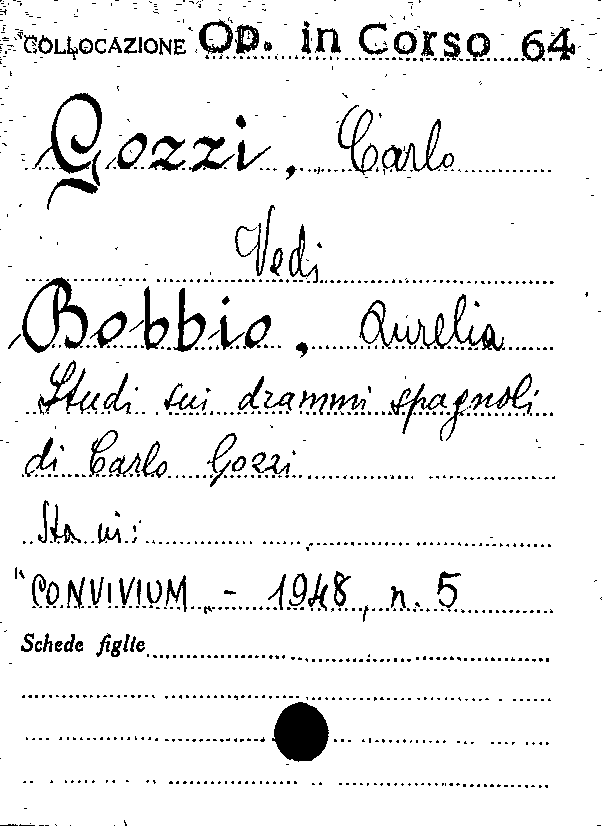 COLLOCAZIONE Op. in Corso 64
Gozzi, Carlo
Vedi
Bobbio, Aurelia
Studi sui drammi spagnoli
di Carlo Gozzi
Sta in:
"CONVIVIUM" - 1948, n. 5
Schede figlie